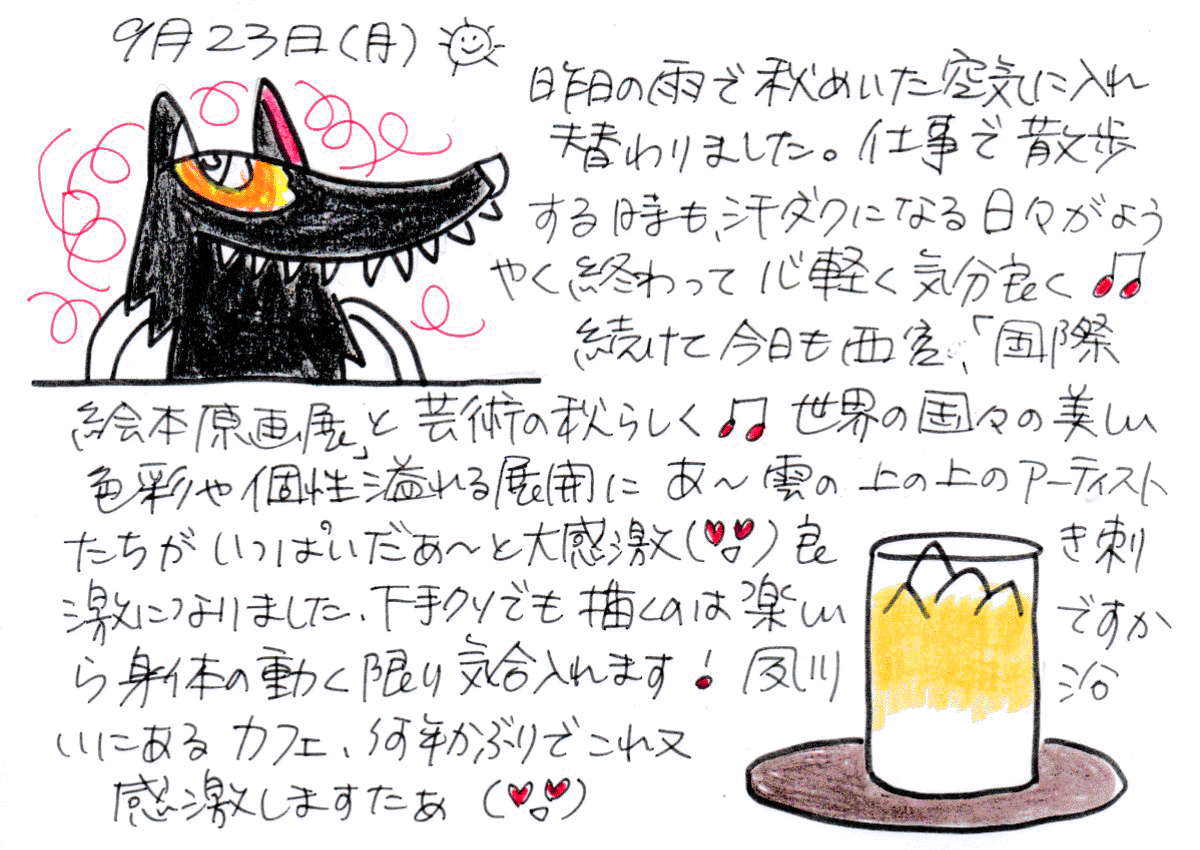 9月23日(月)
昨日の雨で秋めいた空気に入れ
替わりました。仕事で散歩
する時も、汗ダクになる日々がよう
やく終わって心軽く気分良く
続けて今日も西宮、「国際
絵本原画展」と芸術の秋らしく 世界の国々の美しい
色彩や個性溢れる展開に あ～雲の上の上のアーティスト
たちがいっぱいだぁ～と大感激( )良き刺
激になりました、下手クソでも描くのは楽しいですか
ら身体の動く限り気合入れます! 夙川沿
いにあるカフェ、何年かぶりでこれ又
感激しますたぁ( )